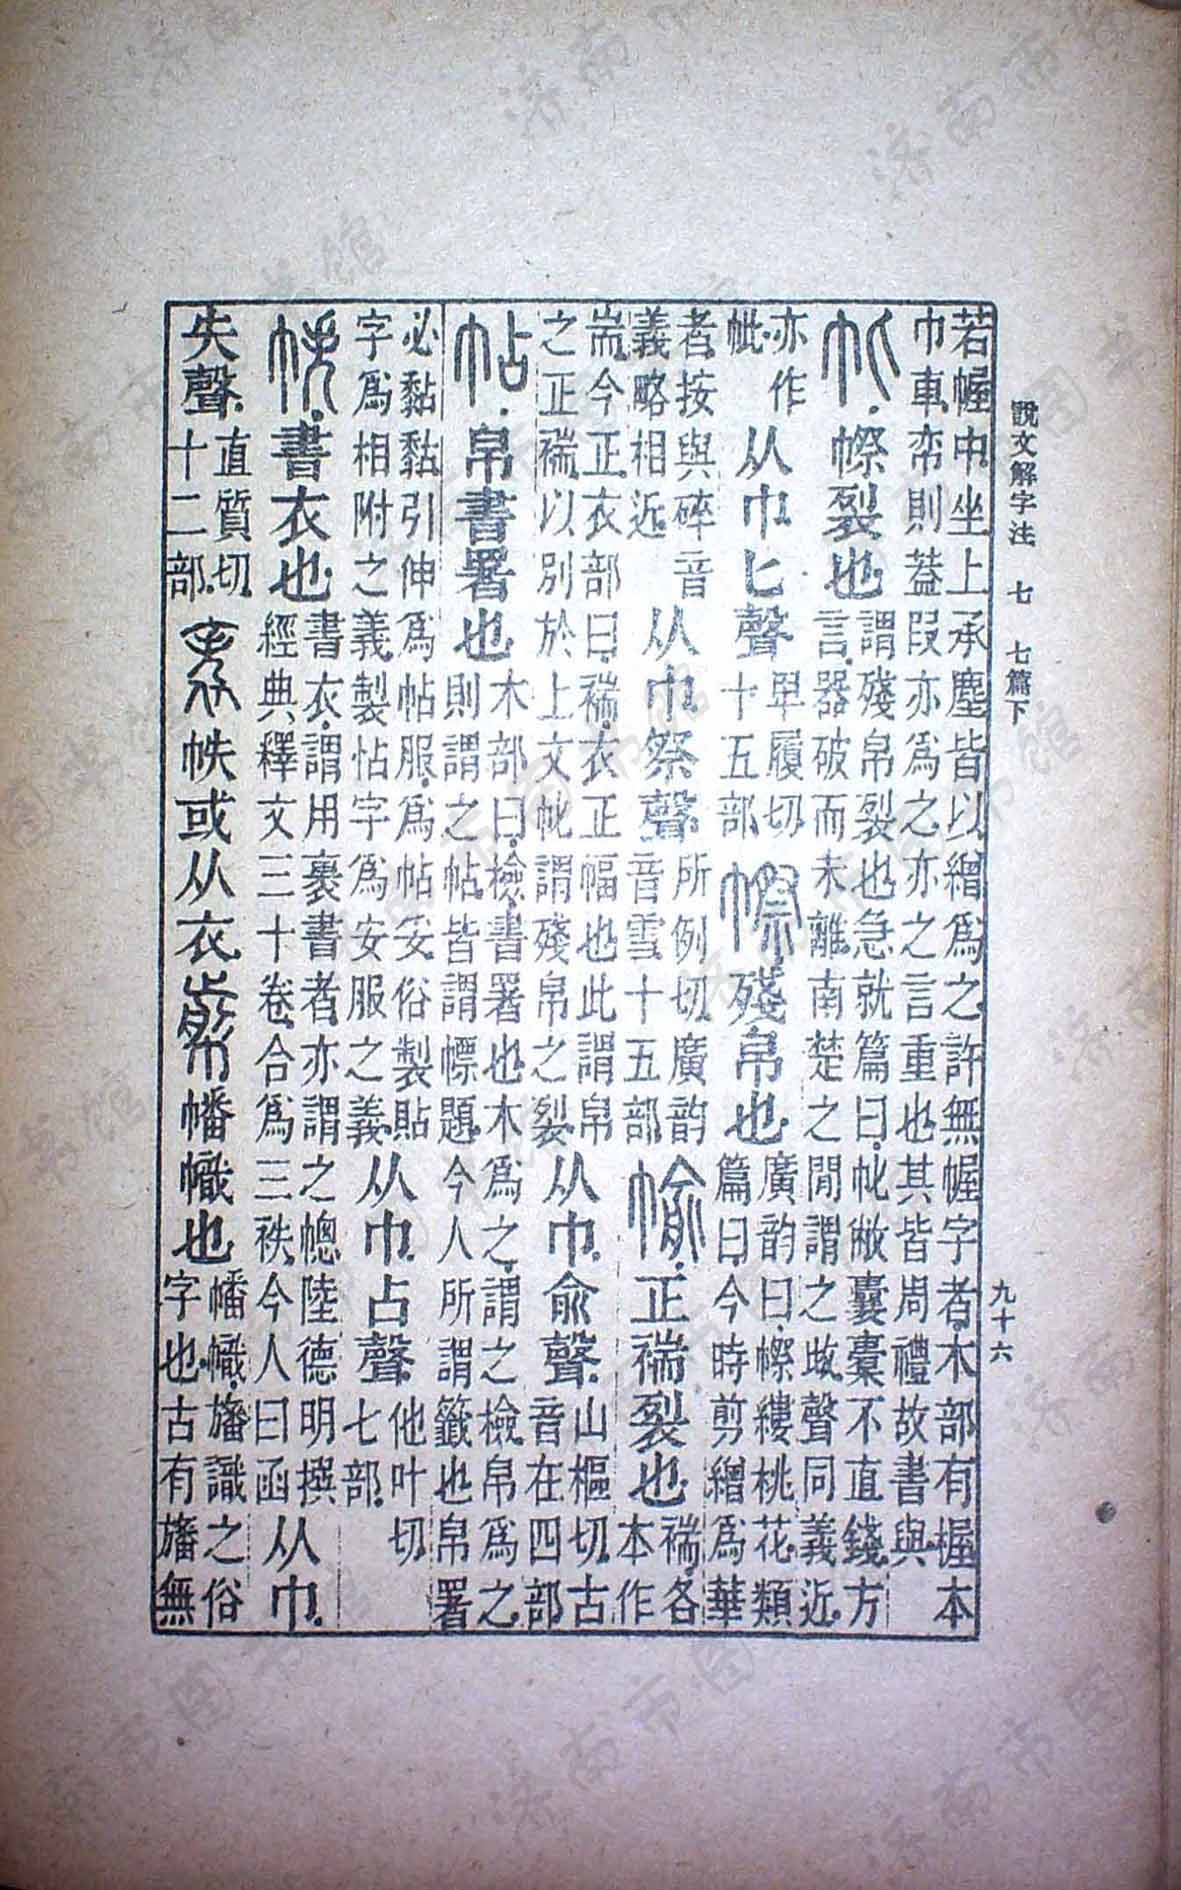 說文解字注 七 七篇下 九十六
若幄中坐上承塵皆以繒爲之許無幄字者木部有楃本
巾車帟則葢叚亦爲之亦之言重也其皆周禮故書與
㡜裂也
謂殘帛裂也急就篇曰帔敝囊橐不直錢方
言器破而未離南楚之閒謂之㪏聲同義近
亦作
㡙
从巾匕聲
卑履切
十五部
㡜殘帛也
廣韵曰㡜縷桃花類
篇曰今時剪繒爲華
者按與碎音
義略相近
从巾祭聲
所例切廣韵
音雪十五部
㡏正褍裂也
褍各
本作
耑今正衣部曰褍衣正幅也此謂帛
之正褍以別於上文㡙謂殘帛之裂
从巾俞聲
山樞切古
音在四部
帖帛書署也
木部曰檢書署也木爲之謂之檢帛爲之
則謂之帖皆謂幖題今人所謂籤也帛署
必黏黏引伸爲帖服爲帖妥俗製貼
字爲相附之義製怗字爲安服之義
从巾占聲
他叶切
七部
帙書衣也
書衣謂用裹書者亦謂之幒陸德明撰
經典釋文三十卷合爲三袟今人曰函
从巾
失聲
直質切
十二部
袠帙或从衣
幡幟也
幡幟旛識之俗
字也古有旛無